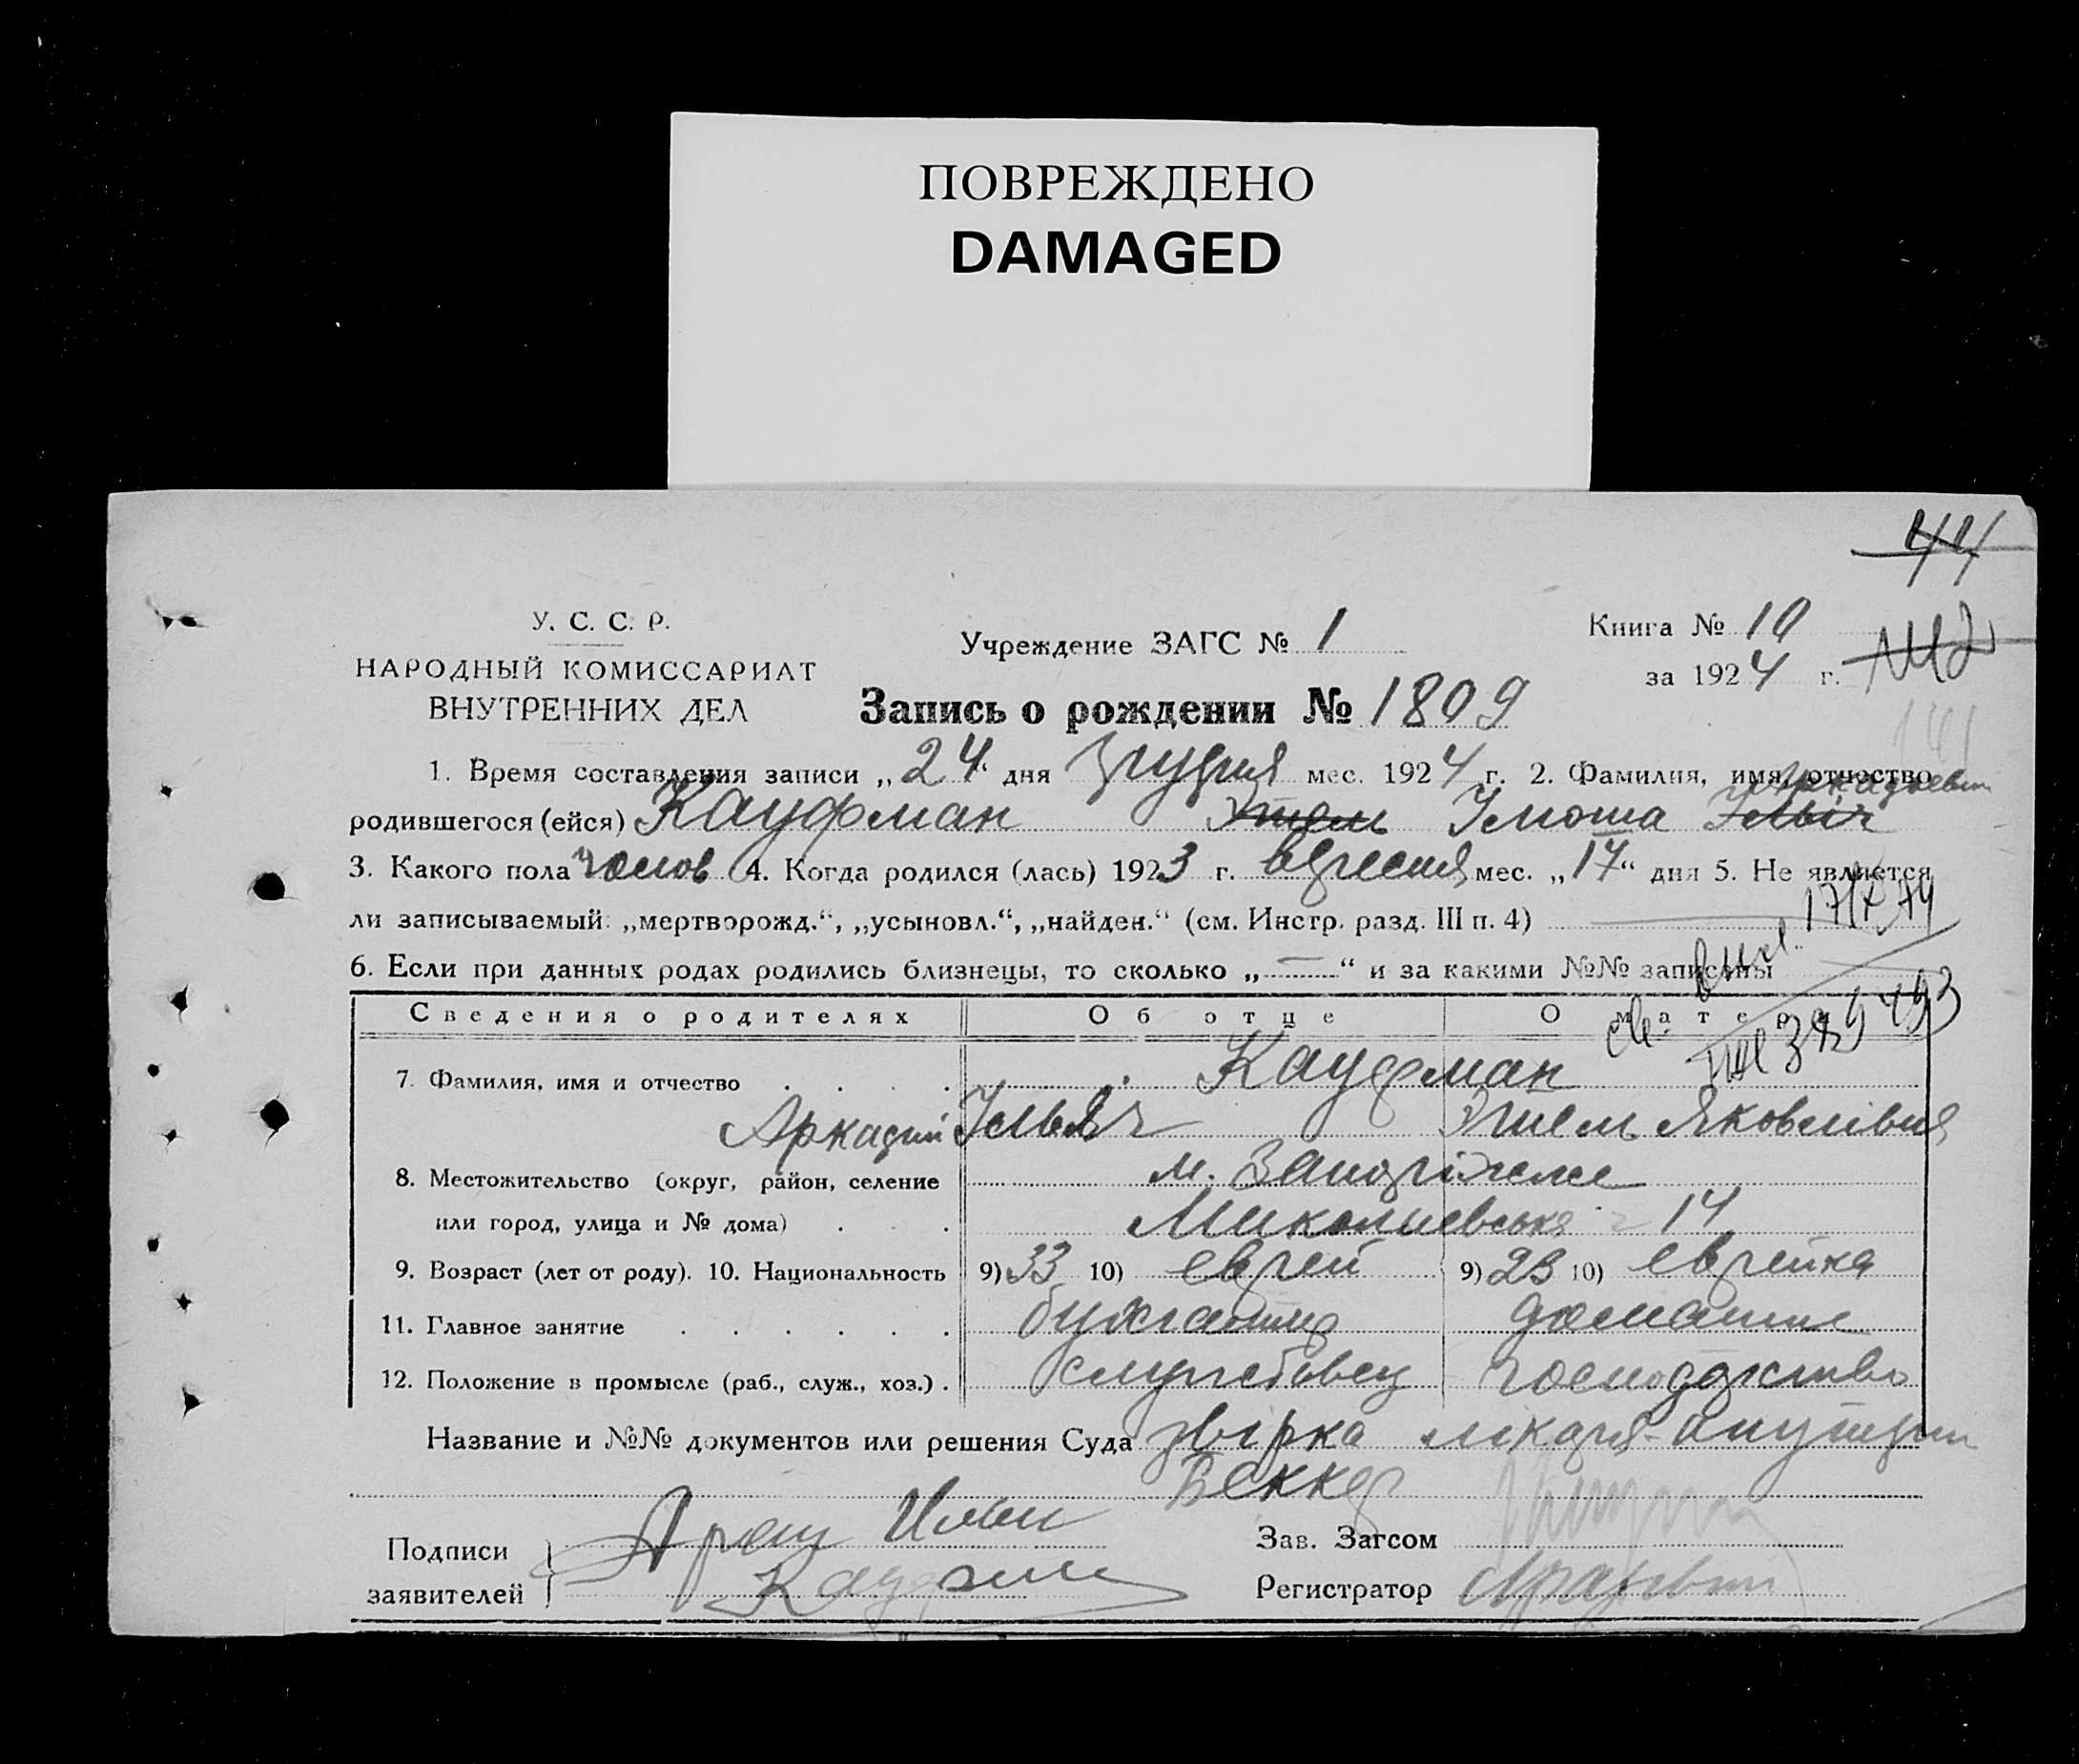 ПОВРЕЖДЕНО
DAMAGED
44
У. С. С. Р.
НАРОДНЫЙ КОМИССАРИАТ
ВНУТРЕННИХ ДЕЛ
Учреждение ЗАГС № 1
Книга № 10
за 1924 г.
Запись о рождении № 1809
141
1. Время составления записи „24“ дня грудня мес. 1924 г. 2. Фамилия, имя, отчество
Аркадьевич
родившегося (ейся) Кауфман Этель Ілюша Ільїч
3. Какого пола чолов 4. Когда родился (лась) 1923 г. вересня мес. „17“ дня 5. Не является
ли записываемый: „мертворожд.“, „усыновл.“, „найден.“ (см. Инстр. разд. III п. 4)
6. Если при данных родах родились близнецы, то сколько „—“ и за какими №№ записаны
Сведения о родителях Об отце О матери
7. Фамилия, имя и отчество Кауфман
Аркадий Ілья Этель Яковлівна
8. Местожительство (округ, район, селение м. Запоріжже
или город, улица и № дома) Миколаевська 14
9. Возраст (лет от роду). 10. Национальность 9) 33 10) еврей 9) 23 10) еврейка
11. Главное занятие бухгалтир домашне
12. Положение в промысле (раб., служ., хоз.) службовец господарство
Название и №№ документов или решения Суда лікаря-
Беккер
Подписи
заявителей
Кауфман
Зав. Загсом
Регистратор